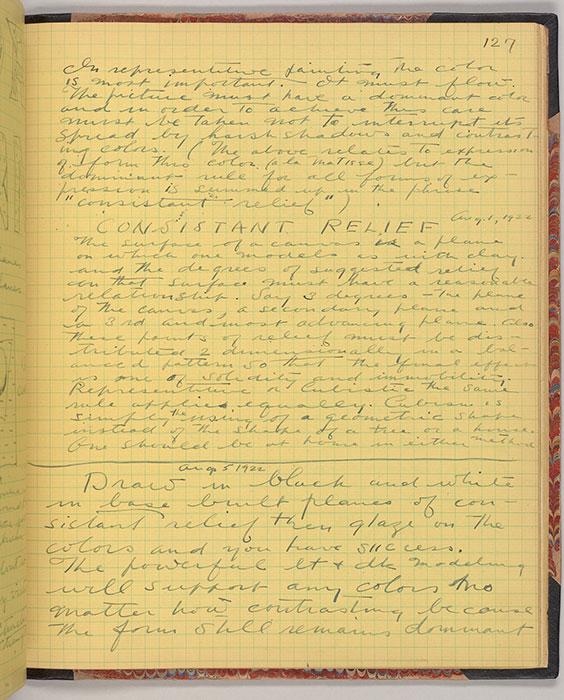 127
In representitive painting the color
is most important. It must flow.
The picture must have a dominant color
and in order to achieve this care
must be taken not to interrupt its
spread by harsh shadows and contrast-
ing colors. (The above relates to expression
of form thro color (a la Matisse) but the
dominant rule for all forms of ex-
pression is summed up in the phrase
"consistant relief")
CONSISTANT RELIEF Aug. 1, 1922
The surface of a canvas is a plane
on which one models as with clay.
and the degrees of suggested relief
on that surface must have a reasonable
relationship. Say 3 degrees - The plane
of the canvas, a secondary plane and
a 3rd and most advancing plane. Also
these points of relief must be dis-
tributed 2 dimensionally in a bal-
anced pattern so that the final effect
is one of solidity and immobility.
Representitive or Cubistic the same
rule applies equally. Cubism is
simply the using of a geometric shape
instead of the shape of a tree or a house.
One should be at home in either method
Aug 5 1922
Draw in black and white
in base built planes of con-
sistant relief then glaze on the
colors and you have success.
The powerful lt + dk modeling
will support any colors no
matter how contrasting because
the form still remains dominant